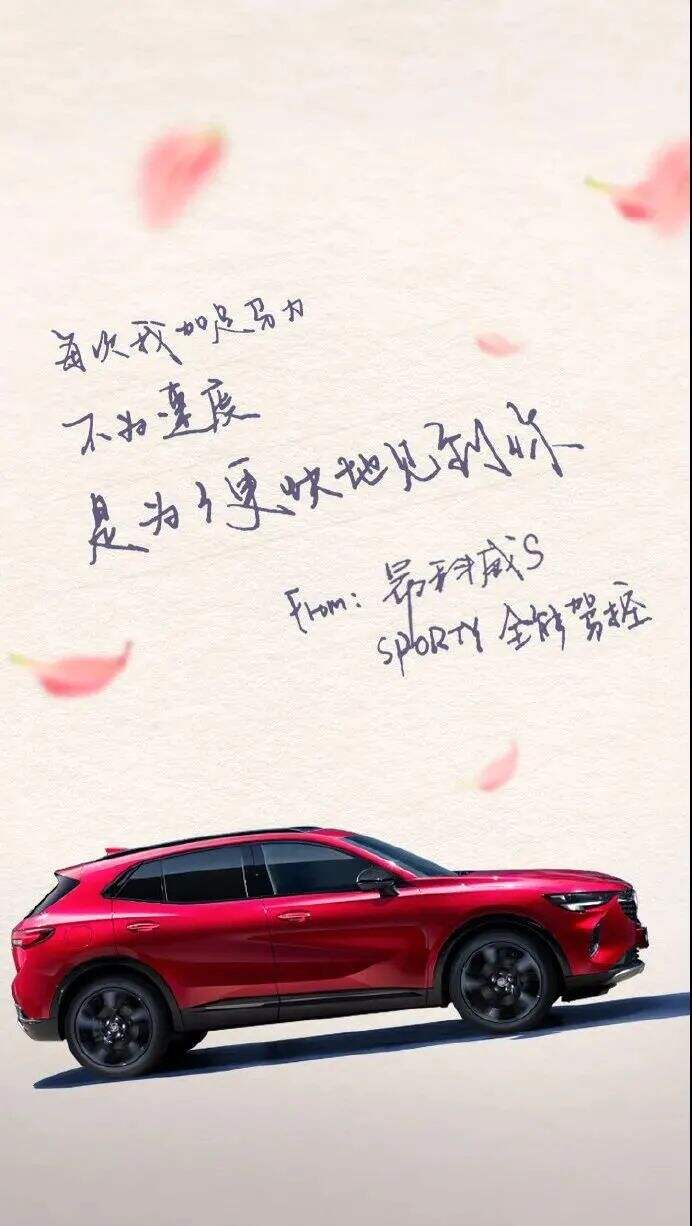 每次我加足马力
不为速度
是为了更快地见到你
From: 昂科威S
SPORTY 全能驾控